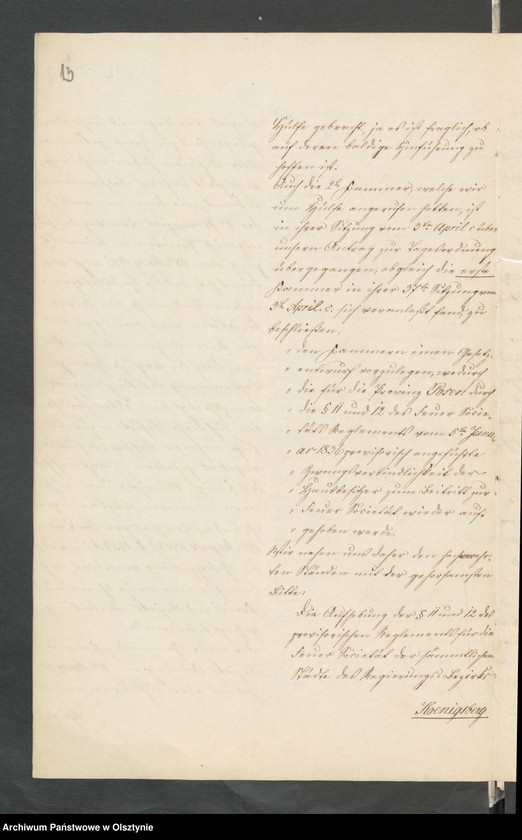 13
Hülfe gebracht, ja es ist fraglich, ob
auf deren baldige Einführung zu
hoffen ist.
Auch die 2te Kammer, welche wir
um Hülfe angerufen hatten, ist
in ihrer Sitzung vom 3ten April c. über
unsern Antrag zur Tagesordnung
übergegangen, obgleich die erste
Kammer in ihrer 37ten Sitzung vom
April. c. sich veranlaßt fand, zu
beschließen,
„ den Kammern einen Gesetz-
„ entwurf vorzulegen, wodurch
„ die für die Provinz Posen durch
„ die § 11 und 12 des Feuer Socie-
„ täts Reglements vom 5ten Janu-
„ ar 1836 provisorisch angeführte
„ Zwangsverbindlichkeit der
„ Hausbesitzer zum Beitritt zur
„ Feuer Societät wieder auf-
„ gehoben werde.
Wir nahen uns daher den hochverehr-
ten Ständen mit der gehorsamsten
Bitte:
Die Aufhebung der § 11 und 12 des
provisorischen Reglements für die
Feuer Societät der sämmtlichen
Städte des Regierungs-Bezirks
Koenigsberg
Archiwum Państwowe w Olsztynie